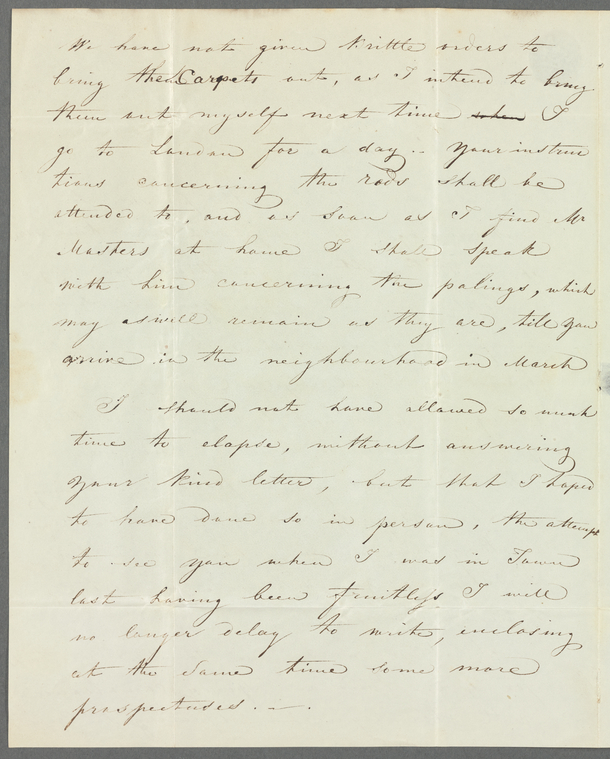 We have not given Krittle orders to
bring the Carpets out, as I intend to bring
them out myself next time when I
go to London for a day .- Your instruc
tions concerning the rods shall be
attended to, and as soon as I find Mr
Masters at home I shall speak
with him concerning the palings, which
may as well remain as they are, till you
arrive in the neighbourhood in March
I should not have allowed so much
time to elapse, without answering
your kind letter, but that I hoped
to have done so in person, the attempt
to see you when I was in Town
last having been fruitless I will
no longer delay to write, enclosing
at the same time some more
prospectuses . — .